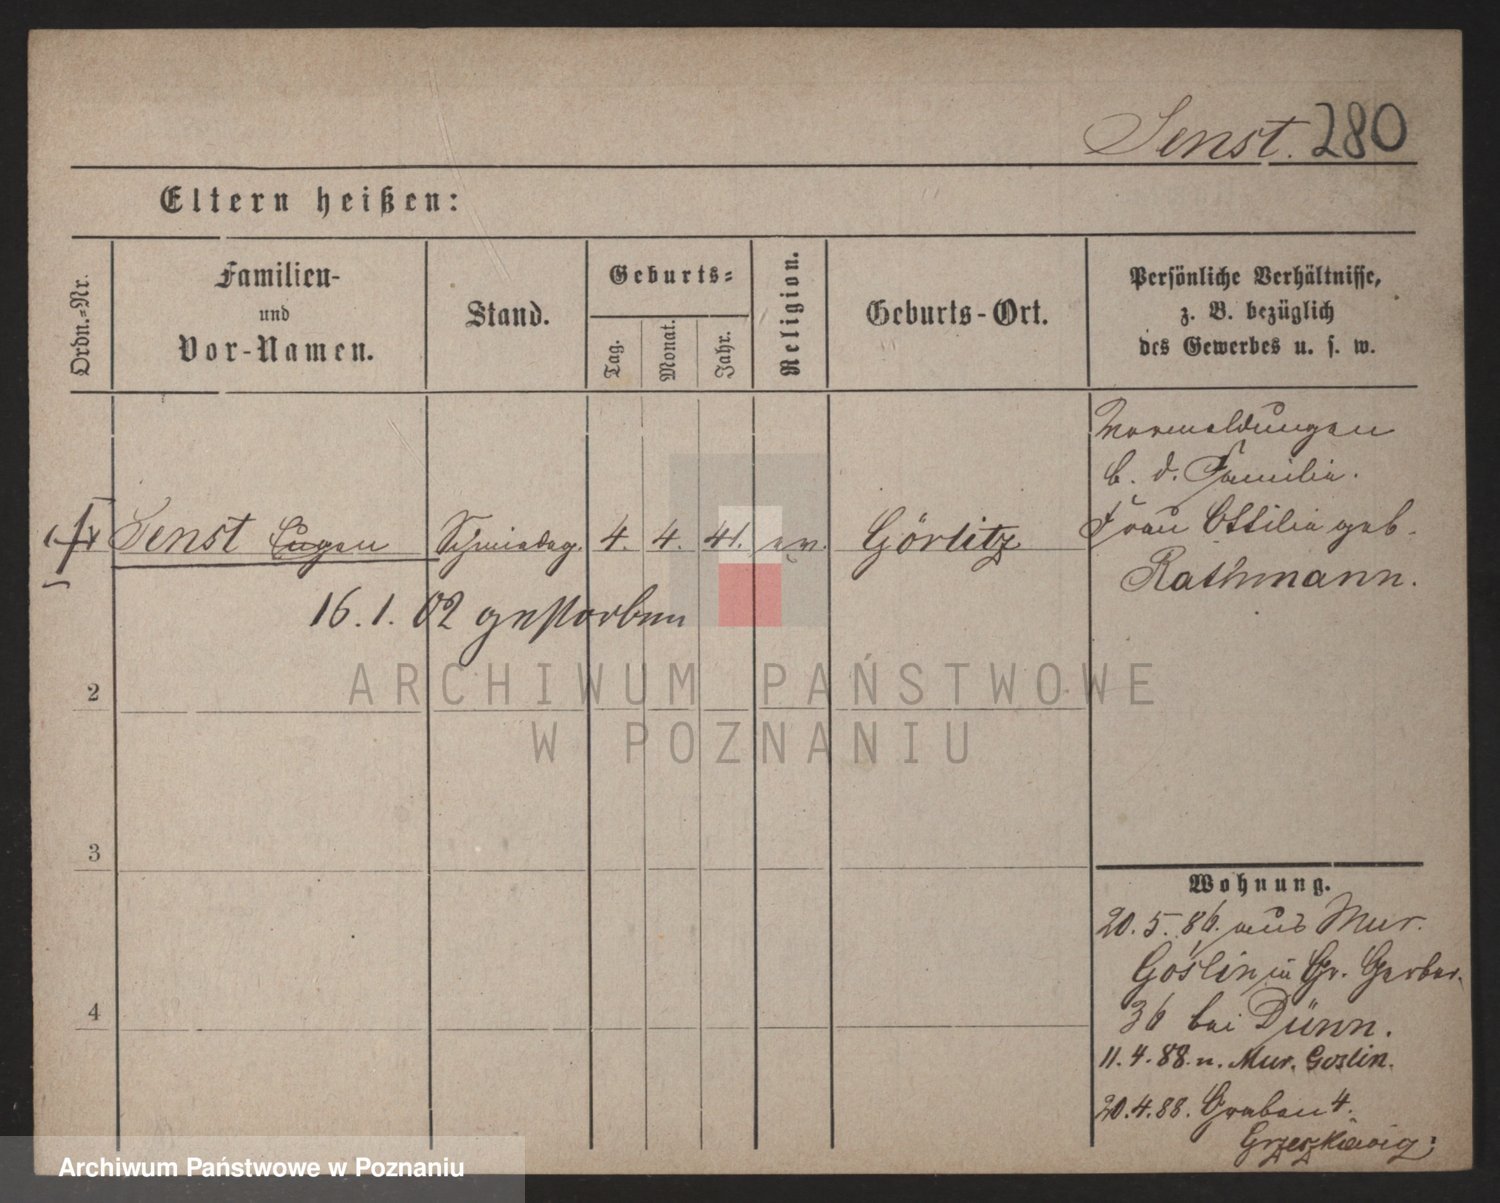 Senst. 280
Eltern heißen:
Ordn.-Nr.
Familien-
und
Vor-Namen.
Stand.
Geburts-
Tag.
Monat.
Jahr.
Religion.
Geburts-Ort.
Persönliche Verhältnisse,
z. B. bezüglich
des Gewerbes u. s. w.
Vormeldungen
b. d. Familie.
Frau Ottilie geb.
Rathmann.
Senst Eugen Schmiedeg. 4. 4. 41. ev. Görlitz
16. 1. 02 gestorben
2
3
4
Wohnung.
20. 5. 86. aus Mur.
Goslin in Gr. Gerber.
36 bei Dünn.
11. 4. 88. n. Mur. Goslin.
20. 4. 88. Graben 4.
ARCHIWUM PAŃSTWOWE
W POZNANIU
Archiwum Państwowe w Poznaniu